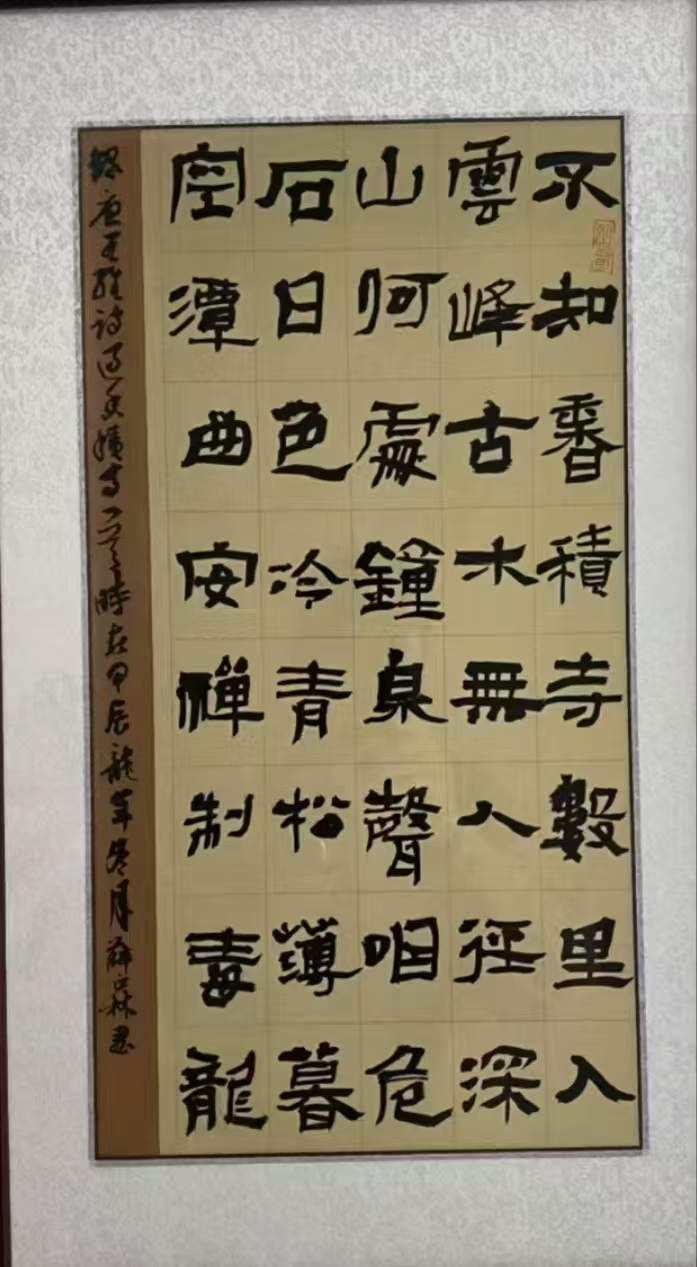 不知香積寺數里入
雲峰古木無人徑深
山何處鐘泉聲咽危
石日色冷青松薄暮
空潭曲安禪制毒龍
錄唐王維诗过香積寺一首時在甲辰龍年冬月薛書